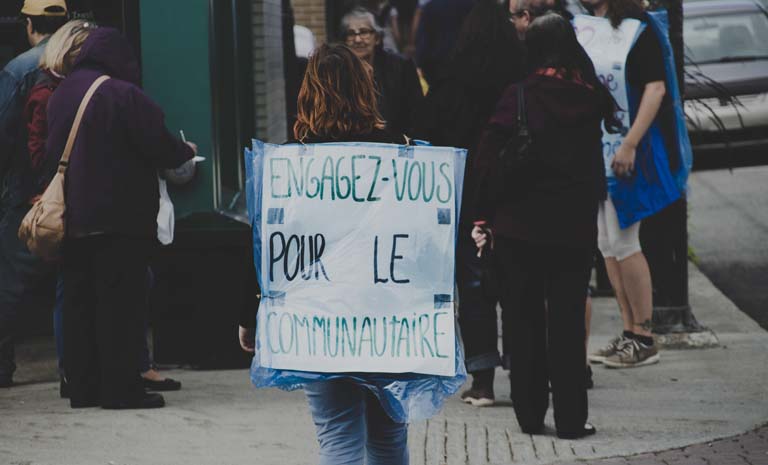 ENGAGEZ-VOUS
POUR LE
COMMUNAUTAIRE